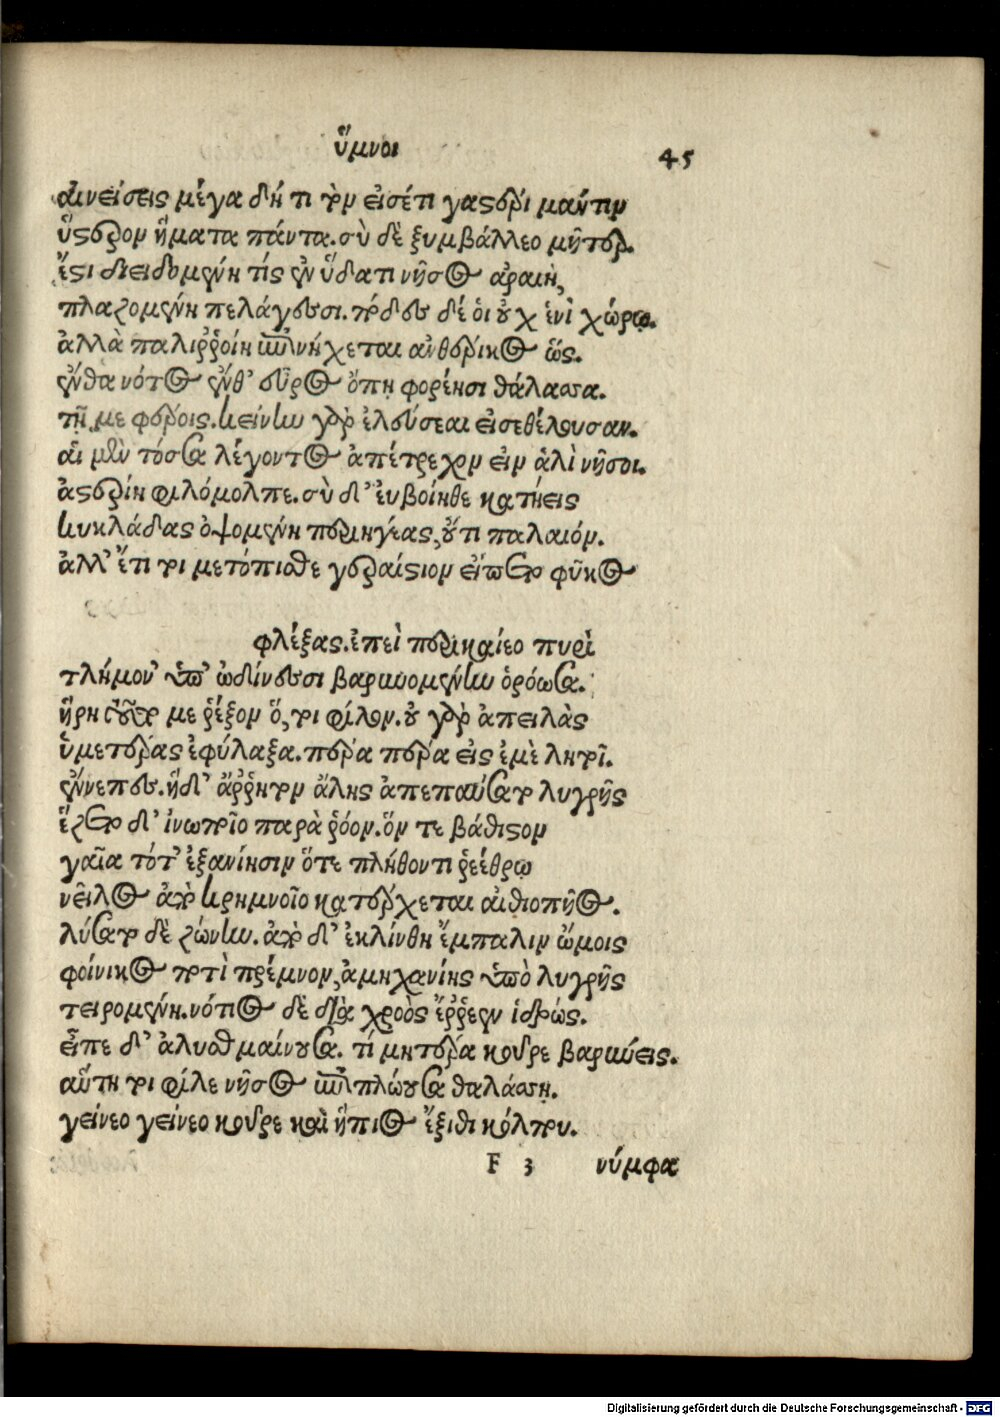 ὕμνοι
45
αἰνείσεις μέγα δή τι τὸν εἰσέτι γαστέρι μάντιν
ὕστερον ἤματα πάντα. σὺ δὲ ξυμβάλλεο μῆτερ.
ἔστι διειδομένη τίς ἐν ὕδατι νῆσος ἀραιὴ,
πλαζομένη πελάγεσσι. πόδες δέ οἱ οὐχ ἑνὶ χώρῳ.
ἀλλὰ παλιῤῥοίη ἐπινήχεται ἀνθέρικος ὥς.
ἔνθα νότος ἔνθ' εὖρος ὅπη φορέησι θάλασσα.
τῇ με φέροις. κείνην γὰρ ἐλεύσεαι εἰσεθέλουσαν.
αἱ μὲν τόσσα λέγοντος ἀπέτρεχον εἰν ἁλὶ νῆσοι.
ἀστερίη φιλόμολπε. σὺ δ' εὐβοίηθε κατῄεις
κυκλάδας ὀψομένη περιηγέας, οὔτι παλαιόν.
ἀλλ' ἔτι τοι μετόπισθε γεραίστιον εἵπετο φῦκος
φλέξας. ἐπεὶ περικαίεο πυρὶ
τλήμον' ὑπ' ὠδίνεσσι βαρυνομένην ὁρόωσα.
ἥρη τοῦτό με ῥέξον ὅ, τοι φίλον. οὐ γὰρ ἀπειλὰς
ὑμετέρας ἐφύλαξα. πέρα πέρα εἰς ἐμὲ λητοῖ.
ἔννεπες. ἡ δ' ἄῤῥητον ἄλης ἀπεπαύσατο λυγρῆς
ἕζετο δ' ἰνωποῖο παρὰ ῥόον. ὅν τε βάθιστον
γαῖα τότ' ἐξανίησιν ὅτε πλήθοντι ῥεέθρῳ
νεῖλος ἀπὸ κρημνοῖο κατέρχεται αἰθιοπῆος.
λύσατο δὲ ζώνην. ἀπὸ δ' ἐκλίνθη ἔμπαλιν ὤμοις
φοίνικος ποτὶ πρέμνον, ἀμηχανίης ὑπὸ λυγρῆς
τειρομένη. νότιος δὲ διὰ χροὸς ἔῤῥεεν ἱδρώς.
εἶπε δ' ἀλυσθμαίνουσα. τί μητέρα κοῦρε βαρύνεις.
αὕτη τοι φίλε νῆσος ἐπιπλώουσα θαλάσσῃ.
γείνεο γείνεο κοῦρε καὶ ἤπιος ἔξιθι κόλπου.
F 3 νύμφα
Digitalisierung gefördert durch die Deutsche Forschungsgemeinschaft - DFG